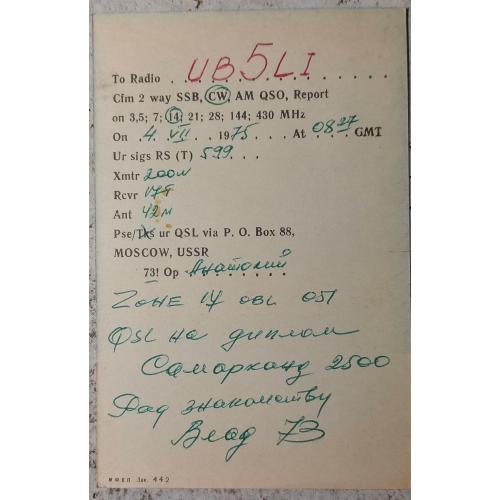 To Radio . . UB5LI . . . .
Cfm 2 way SSB, CW, AM QSO, Report
on 3,5; 7; 14; 21; 28; 144; 430 MHz
On . 4. VII . . 1975 . . At . 0827 GMT
Ur sigs RS (T) 599. . .
Xmtr 200W
Rcvr 17T
Ant 42м
Pse/Tks ur QSL via P. O. Box 88,
MOSCOW, USSR
73! Op . Анатолий
ZONE 17 OBL 051
QSL на диплом
Самарканд 2500
Рад знакомству
Влад 73
МФОП Зак. 442